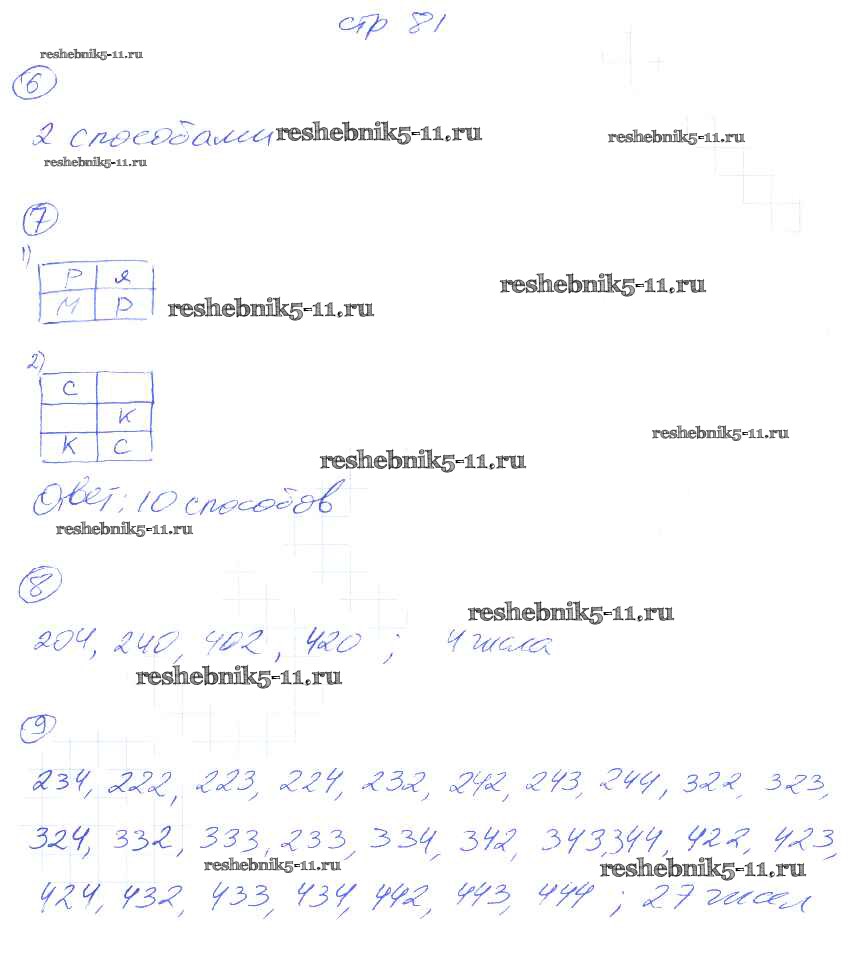 стр 81
reshebnik5-11.ru
6
2 способами reshebnik5-11.ru reshebnik5-11.ru
reshebnik5-11.ru
7
1)
Р Я
М Р
reshebnik5-11.ru reshebnik5-11.ru
2)
С
К
К С
reshebnik5-11.ru
reshebnik5-11.ru
Ответ: 10 способов
reshebnik5-11.ru
8
reshebnik5-11.ru
204, 240, 402, 420; 4 числа
reshebnik5-11.ru
9
234, 222, 223, 224, 232, 242, 243, 244, 322, 323,
324, 332, 333, 233, 334, 342, 343, 344, 422, 423,
reshebnik5-11.ru reshebnik5-11.ru
424, 432, 433, 434, 442, 443, 444; 27 чисел